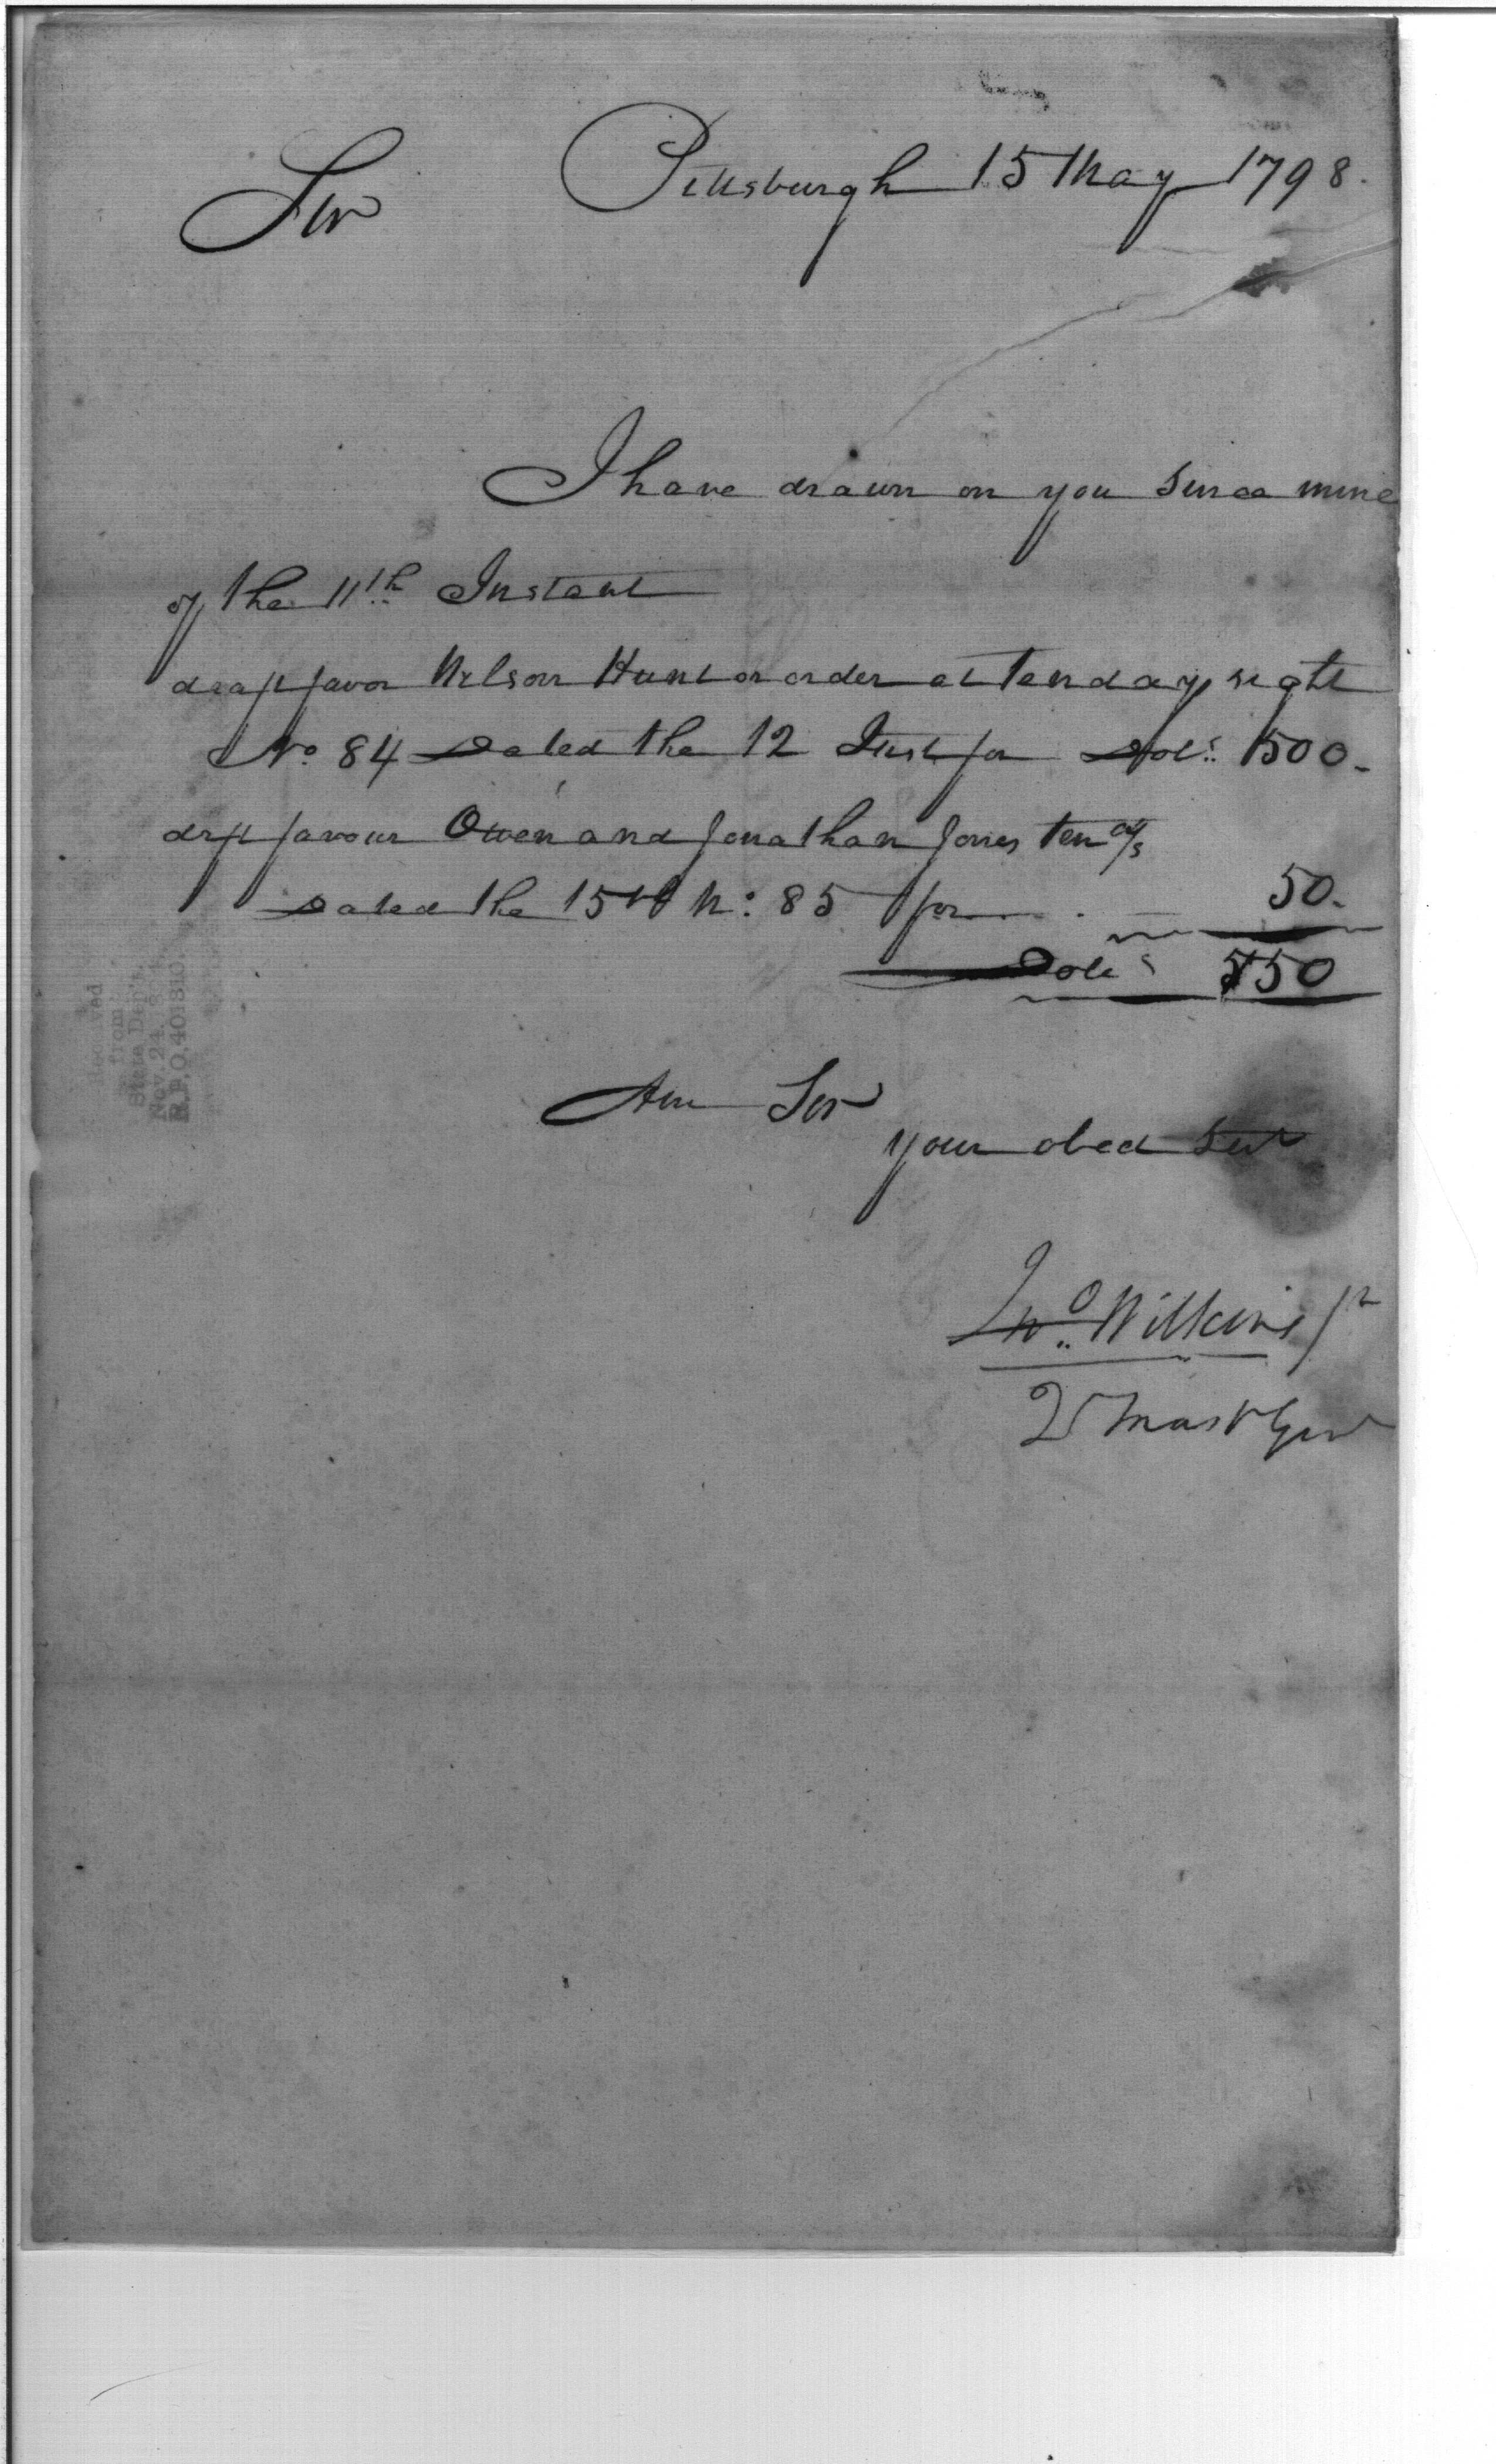 Sir Pittsburgh 15 May 1798.
I have drawn on you since mine
of the 11th Instant
draft favor Wilson Hunt or order at ten days sight
No. 84 Dated the 12 Inst for Dols. 500.
drft favour Owen and Jonathan Jones ten d/s
Dated the 15th N: 85 for 50.
Dols 550
Am Sir
your obed Sert
Jno. Wilkins Jr
Q Mastr Genl
Received
from
State Dep't,
Nov. 24,
R.P.O. 401310.